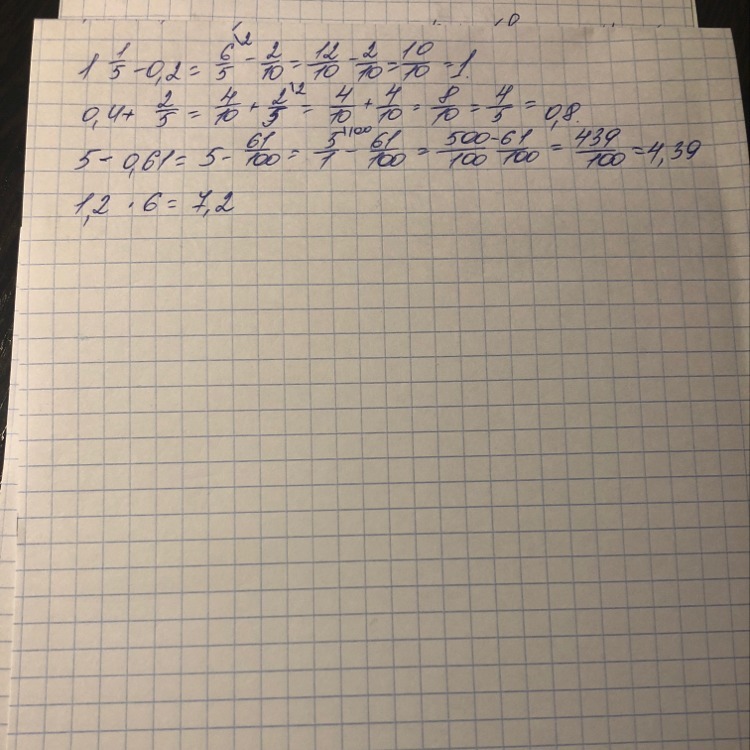 1 1/5 - 0,2 = 6/5 \2 - 2/10 = 12/10 - 2/10 = 10/10 = 1.
0,4 + 2/5 = 4/10 + 2/5 \2 = 4/10 + 4/10 = 8/10 = 4/5 = 0,8.
5 - 0,61 = 5 - 61/100 = 5/1 \100 - 61/100 = 500/100 - 61/100 = 439/100 = 4,39
1,2 · 6 = 7,2